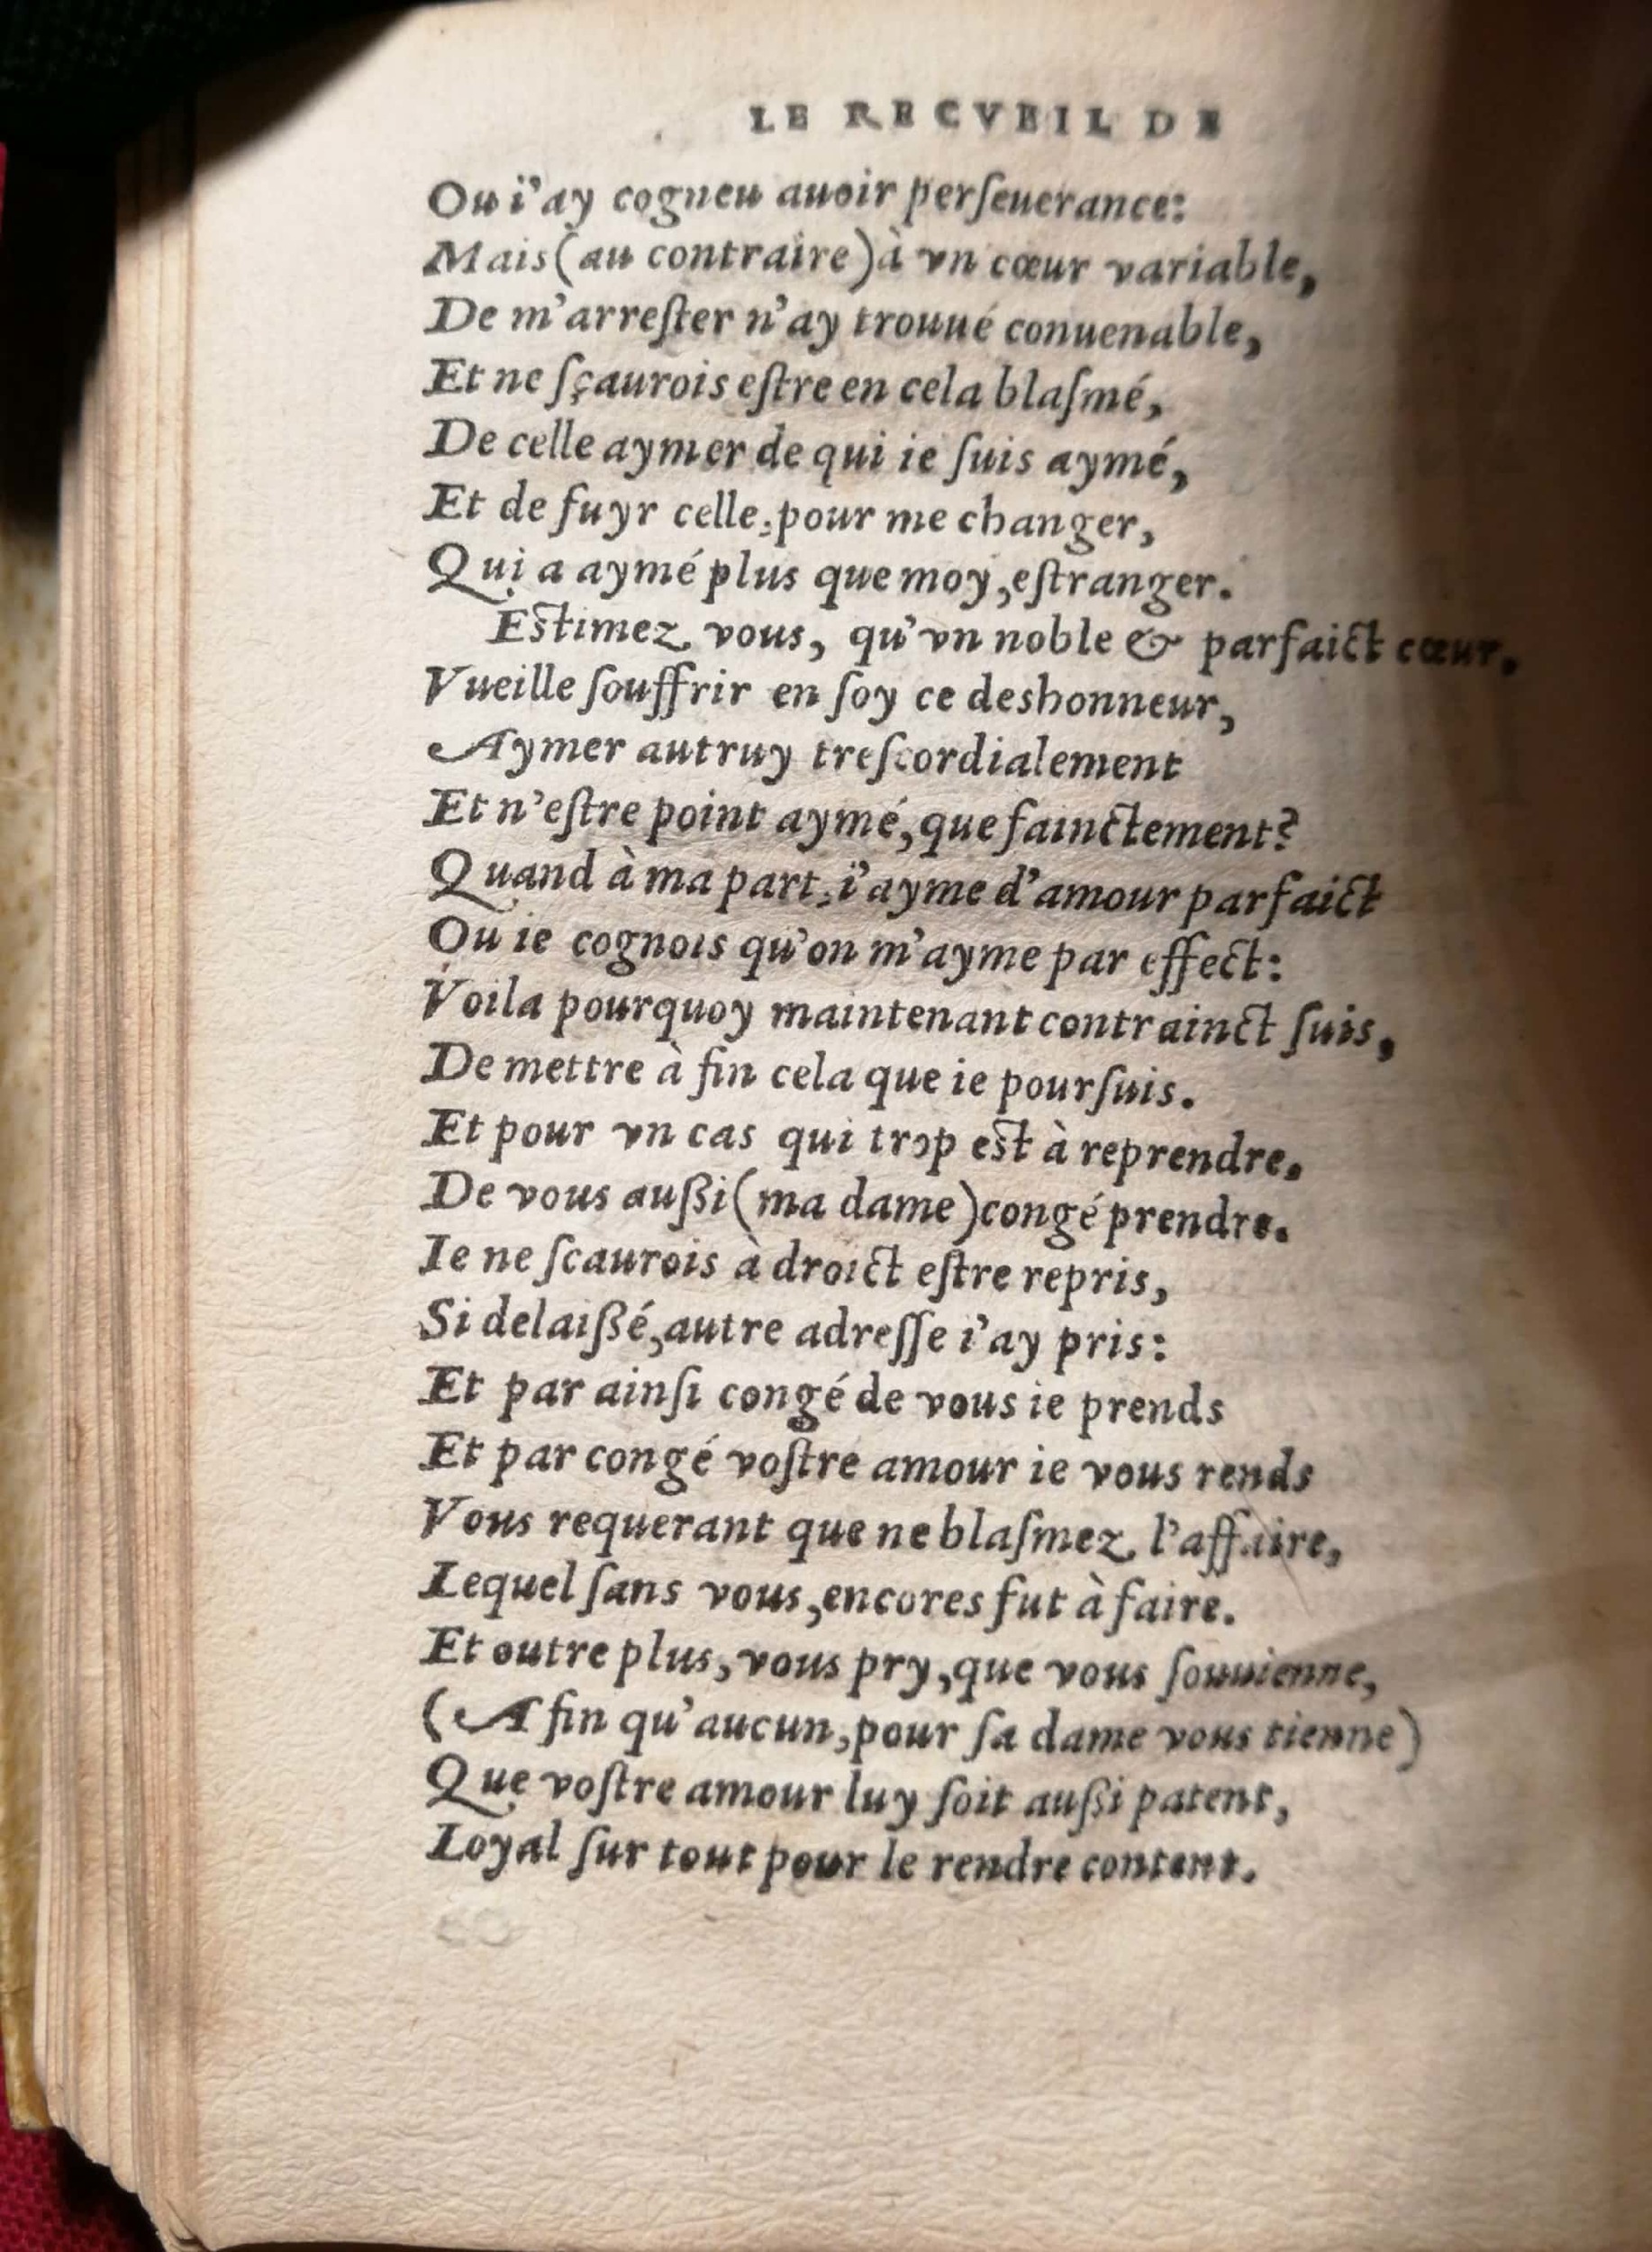 LE RECVEIL DE
Ou i'ay cogneu auoir perſeuerance:
Mais (au contraire) à vn cœur variable,
De m'arreſter n'ay trouué conuenable,
Et ne ſçaurois eſtre en cela blaſmé,
De celle aymer de qui ie ſuis aymé,
Et de fuyr celle, pour me changer,
Qui a aymé plus que moy, eſtranger.
Estimez vous, qu'vn noble & parfaict cœur,
Vueille ſouffrir en ſoy ce deshonneur,
Aymer autruy treſcordialement
Et n'eſtre point aymé, que fainctement?
Quand à ma part, i'ayme d'amour parfaict
Ou ie cognois qu'on m'ayme par effect:
Voila pourquoy maintenant contrainct ſuis,
De mettre à fin cela que ie pourſuis.
Et pour vn cas qui trop est à reprendre,
De vous außi (ma dame) congé prendre.
Ie ne ſcaurois à droict eſtre repris,
Si delaißé, autre adreſſe i'ay pris:
Et par ainſi congé de vous ie prends
Et par congé voſtre amour ie vous rends
Vous requerant que ne blaſmez l'affaire,
Lequel ſans vous, encores fut à faire.
Et outre plus, vous pry, que vous ſouuienne,
(Afin qu'aucun, pour ſa dame vous tienne)
Que voſtre amour luy ſoit außi patent,
Loyal ſur tout pour le rendre content.